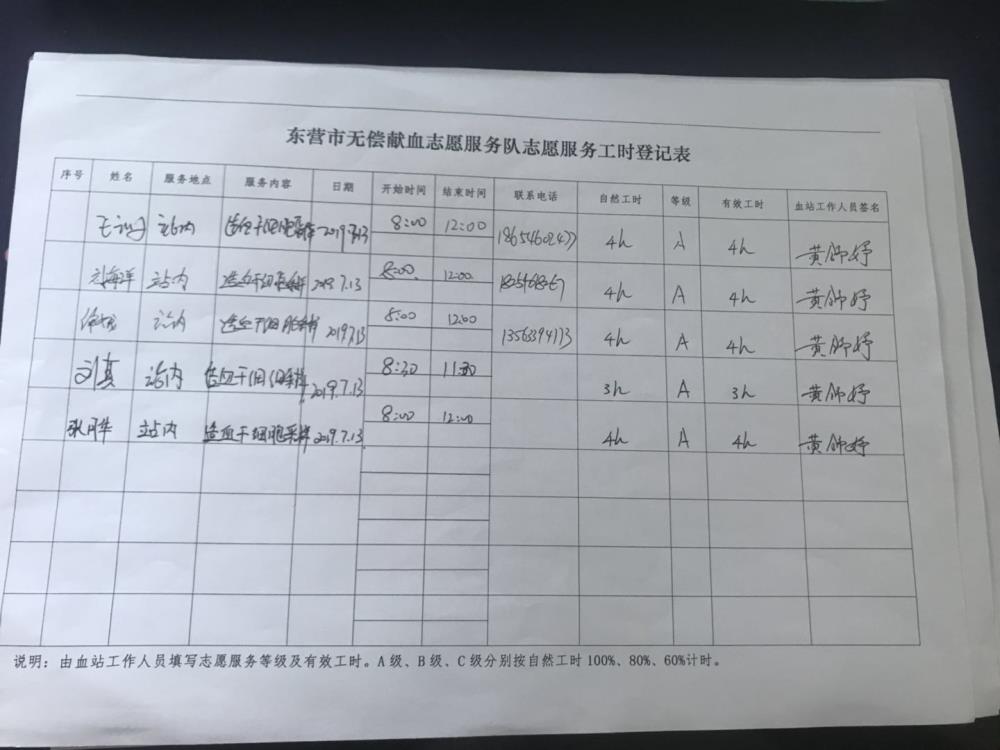 东营市无偿献血志愿服务队志愿服务工时登记表
序号 姓名 服务地点 服务内容 日期 开始时间 结束时间 联系电话 自然工时 等级 有效工时 血站工作人员签名
站内 造血干细胞采样 2019.7.13 8:00 12:00 4h A 4h 黄帅妤
刘海洋 站内 造血干细胞采样 2019.7.13 8:00 12:00 4h A 4h 黄帅妤
站内 造血干细胞采样 2019.7.13 8:00 12:00 13563394173 4h A 4h 黄帅妤
刘真 站内 造血干细胞采样 2019.7.13 8:30 11:30 3h A 3h 黄帅妤
站内 造血干细胞采样 2019.7.13 8:00 12:00 4h A 4h 黄帅妤
说明：由血站工作人员填写志愿服务等级及有效工时。A级、B级、C级分别按自然工时100%、80%、60%计时。